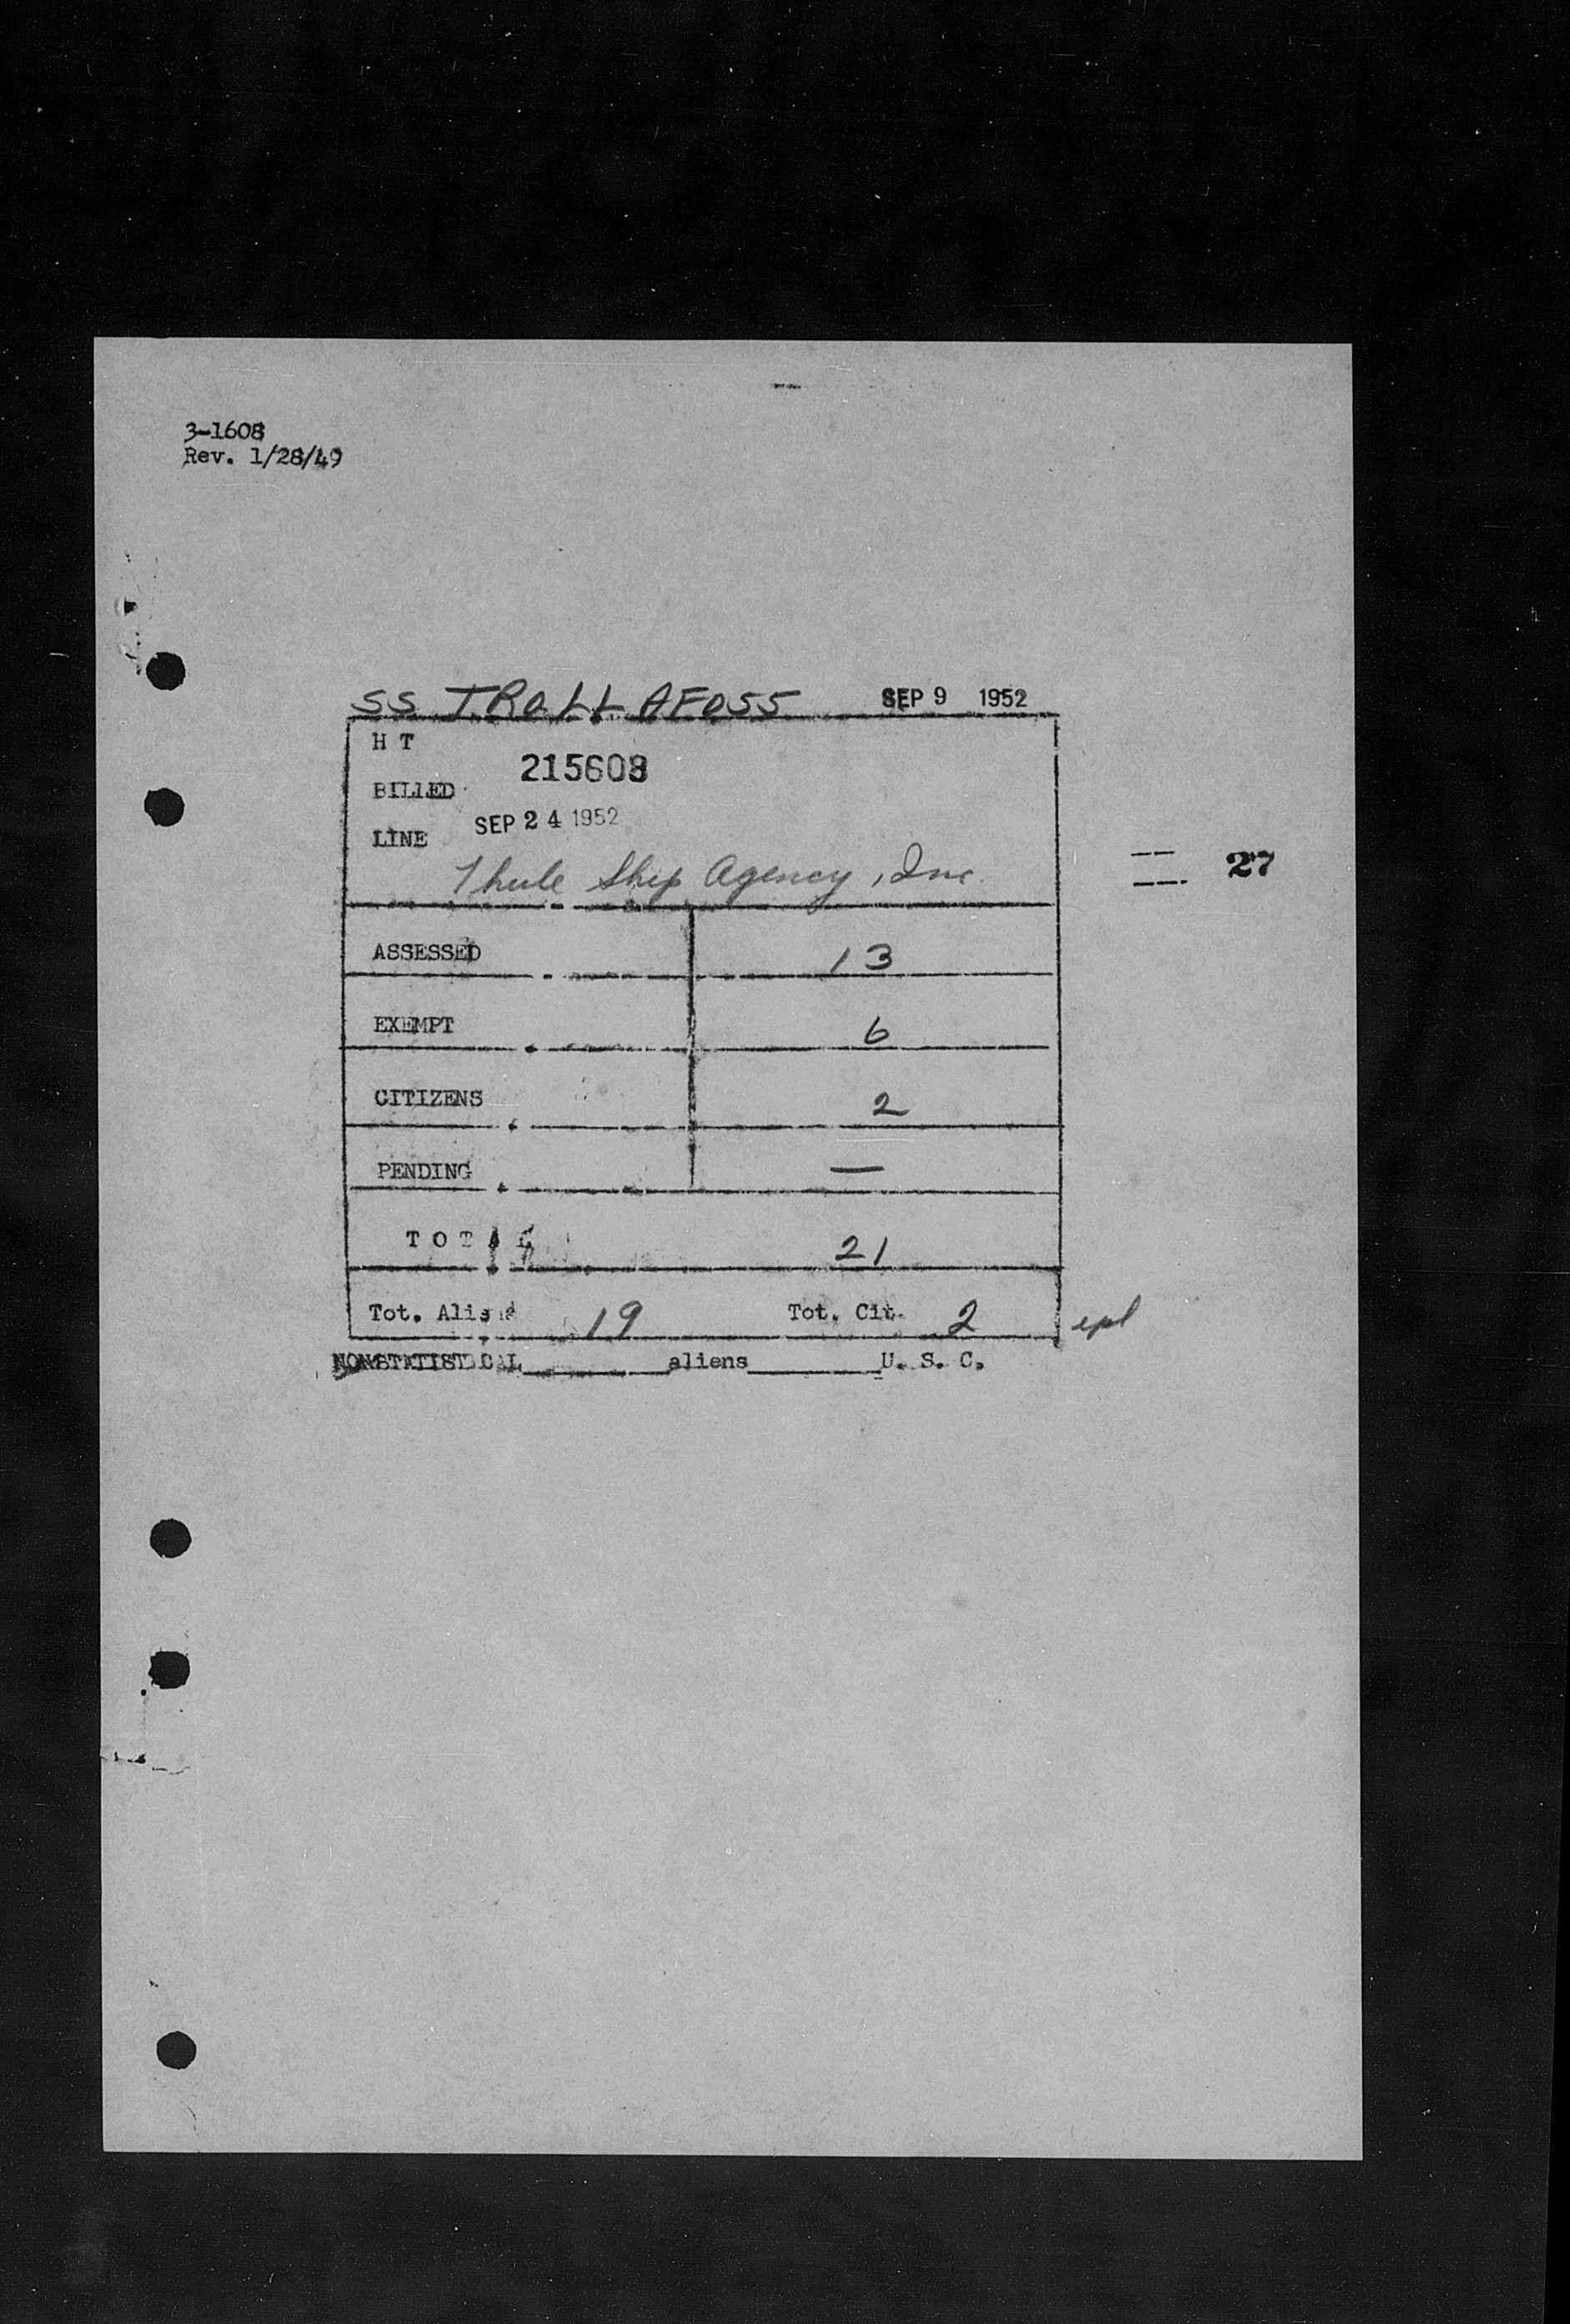 3-1608
Rev. 1/28/49
SS TROLLAFOSS SEP 9 1952
H T
215608
BILLED
SEP 24 1952
LINE
Thule Ship Agency, Inc.
27
ASSESSED 13
EXEMPT 6
CITIZENS 2
PENDING —
TOTAL 21
Tot. Aliens 19 Tot. Cit. 2
NONSTATISTICAL________aliens________U. S. C.